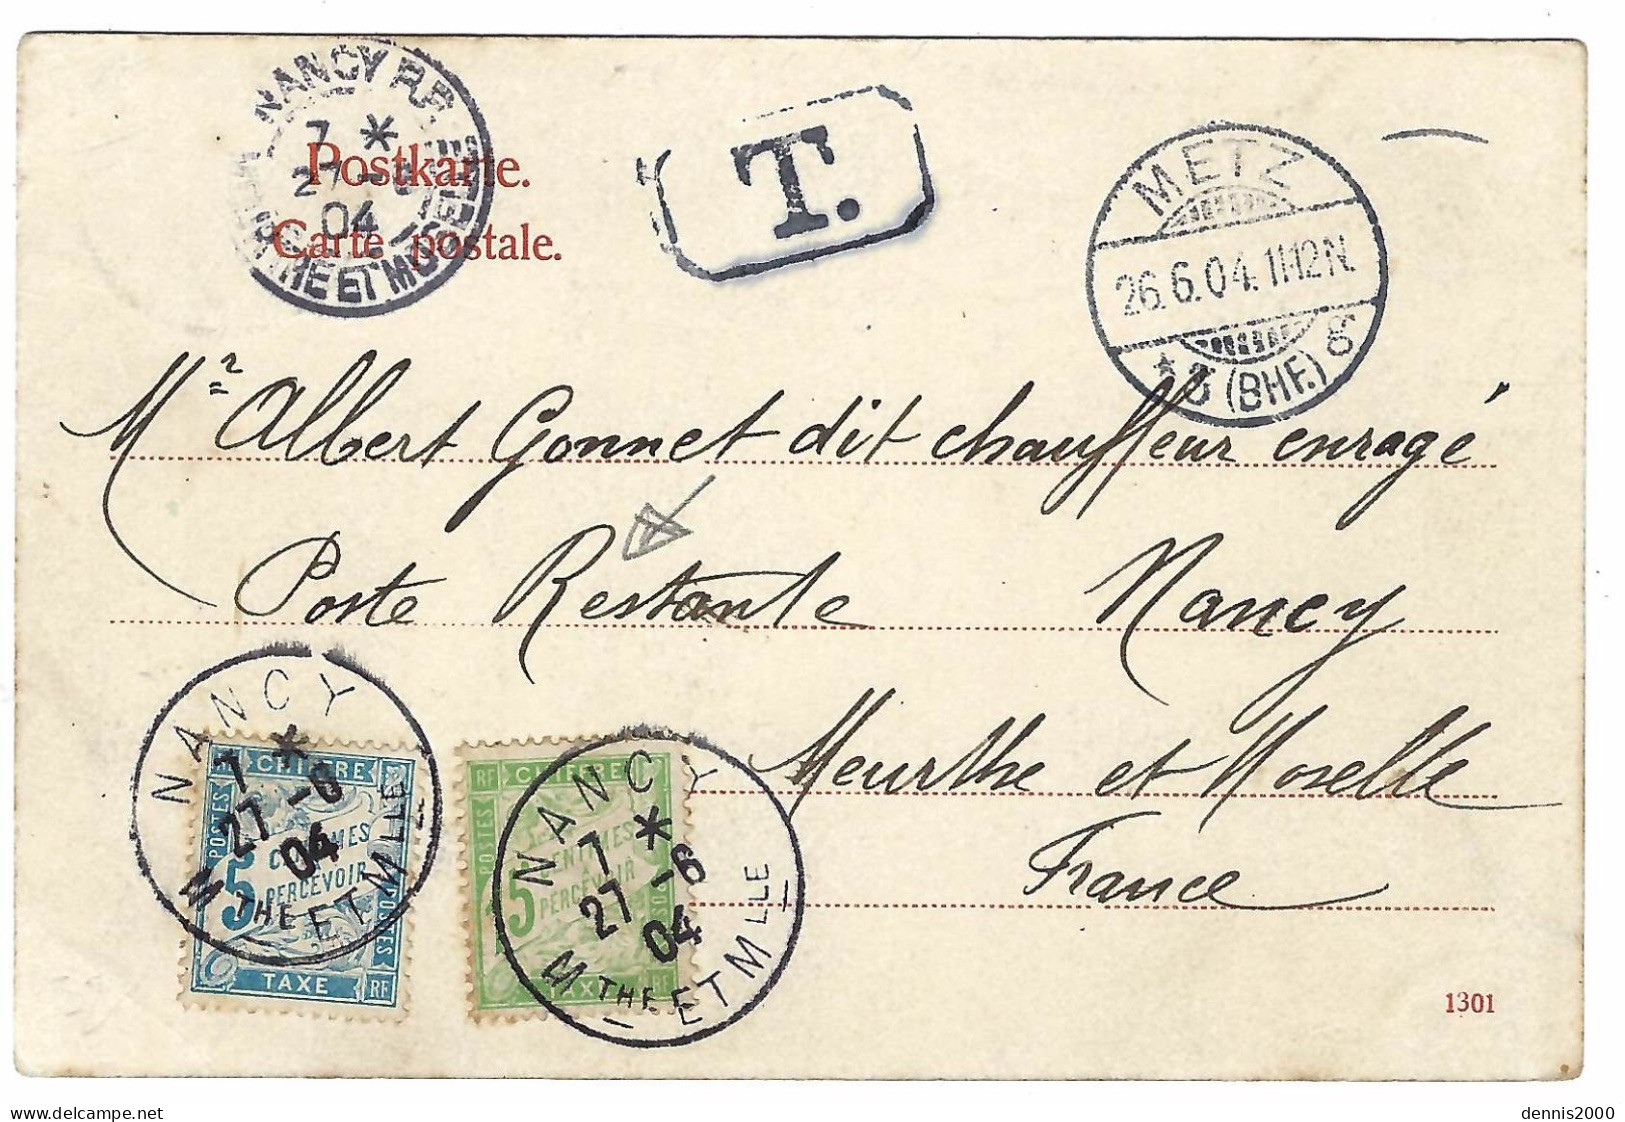 NANCY R.P.
7 *
27 -6
04
MEURTHE ET MOSELLE
Postkarte.
Carte postale.
T.
METZ
26.6.04. 11-12N.
* 5 (BHF.) g
Mr Albert Gonnet dit chauffeur enragé
Poste Restante Nancy
Meurthe et Moselle
France
NANCY
7 *
27 -6
04
MTHE ET MLLE
RF CHIFFRE
POSTES
5 CENTIMES
À
PERCEVOIR
POSTES
TAXE RF
NANCY
7 *
27 -6
04
MTHE ET MLLE
RF CHIFFRE
POSTES
15 CENTIMES
À
PERCEVOIR
TAXE RF
1301
dennis2000